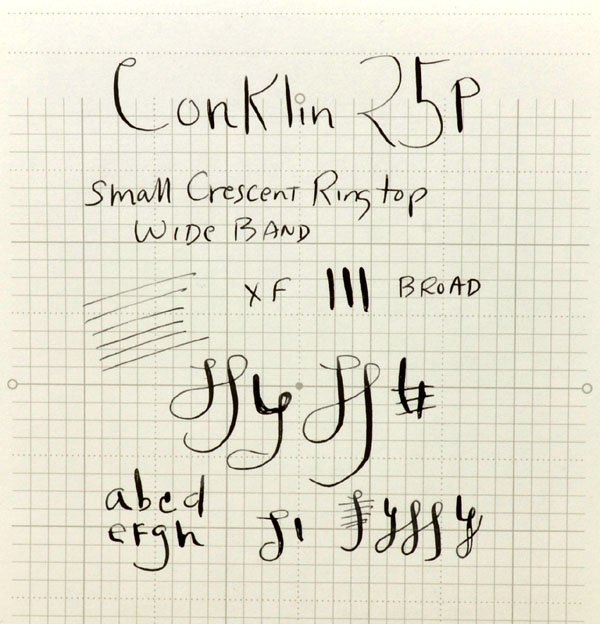 Conklin 25P
Small Crescent Ring top
WIDE BAND
XF BROAD
abcd
efgh